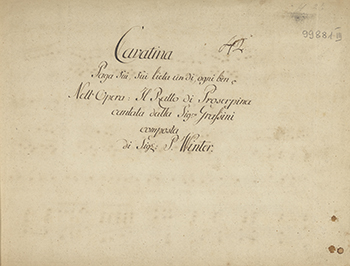 Cavatina
99881
Paga fui, fui lieta un dì ogni ben
Nell'Opera: Il Ratto di Proserpina
cantata dalla Sigra Grassini
composta
di Sigr: P. Winter.